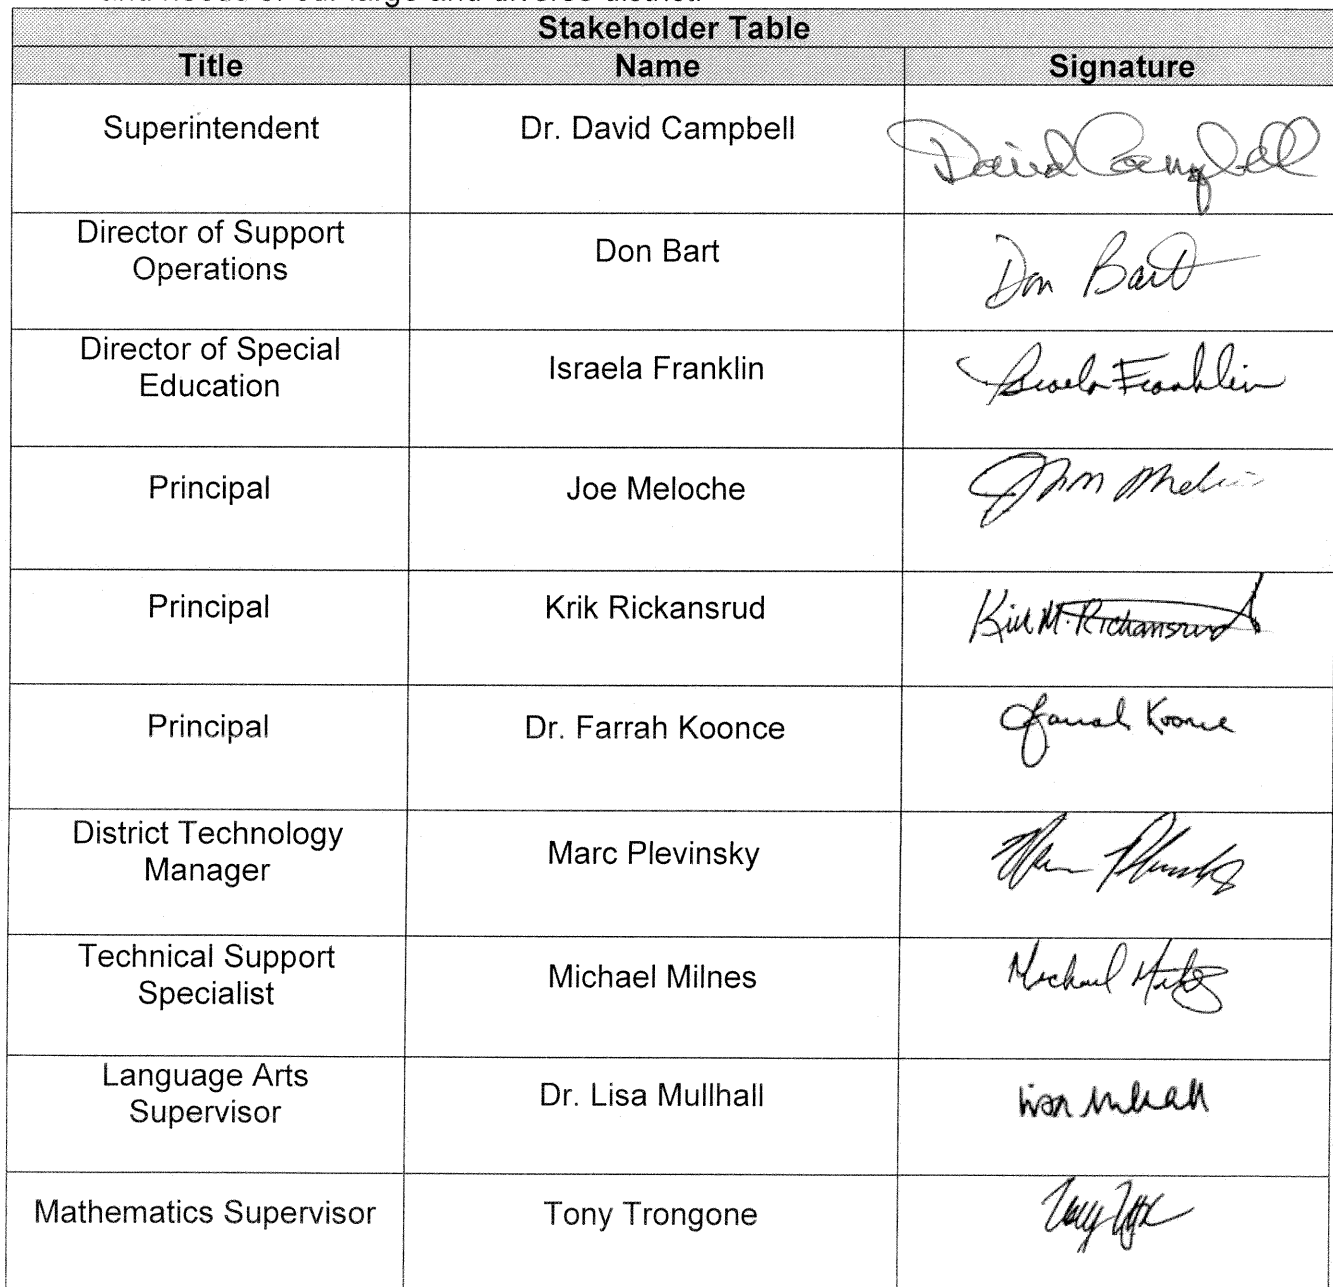 and needs of our large and diverse district.
Stakeholder Table
Title Name Signature
Superintendent Dr. David Campbell David Campbell
Director of Support
Operations Don Bart Don Bart
Director of Special
Education Israela Franklin Israela Franklin
Principal Joe Meloche
Principal Krik Rickansrud Kirk M. Rickansrud
Principal Dr. Farrah Koonce Farrah Koonce
District Technology
Manager Marc Plevinsky
Technical Support
Specialist Michael Milnes Michael
Language Arts
Supervisor Dr. Lisa Mullhall Lisa Mulhall
Mathematics Supervisor Tony Trongone Tony